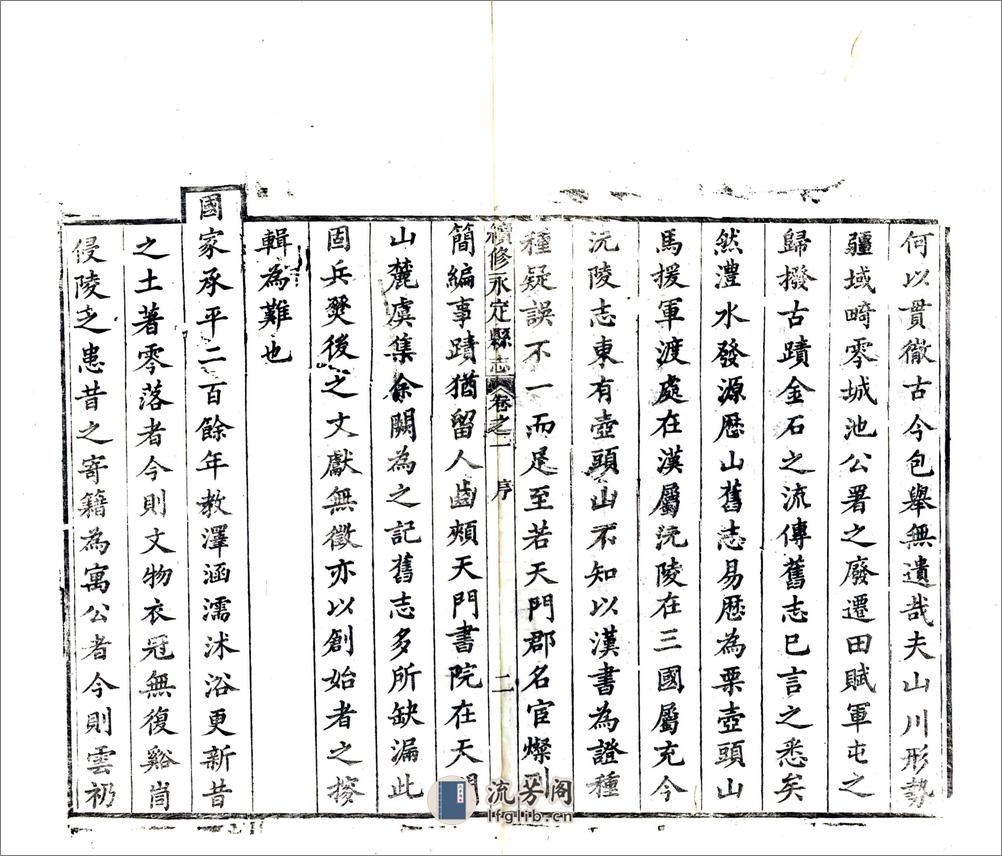 何以貫徹古今包舉無遺哉夫山川形勢
疆域畸零城池公署之廢遷田賦軍屯之
歸撥古蹟金石之流傳舊志已言之悉矣
然澧水發源歷山舊志易歷為栗壺頭山
馬援軍渡處在漢屬沅陵在三國屬充今
沅陵志東有壺頭山不知以漢書為證種
種疑誤不一而足至若天門郡名官燦列
續修永定縣志 卷之一 序 二
簡編事蹟猶留人齒頰天門書院在天門
山麓虞集余闕為之記舊志多所缺漏此
固兵燹後之文獻無徵亦以創始者之搜
輯為難也
國家承平二百餘年教澤涵濡沭浴更新昔
之土著零落者今則文物衣冠無復谿峝
侵陵之患昔之寄籍為寓公者今則雲礽
流芳阁
lfglib.cn